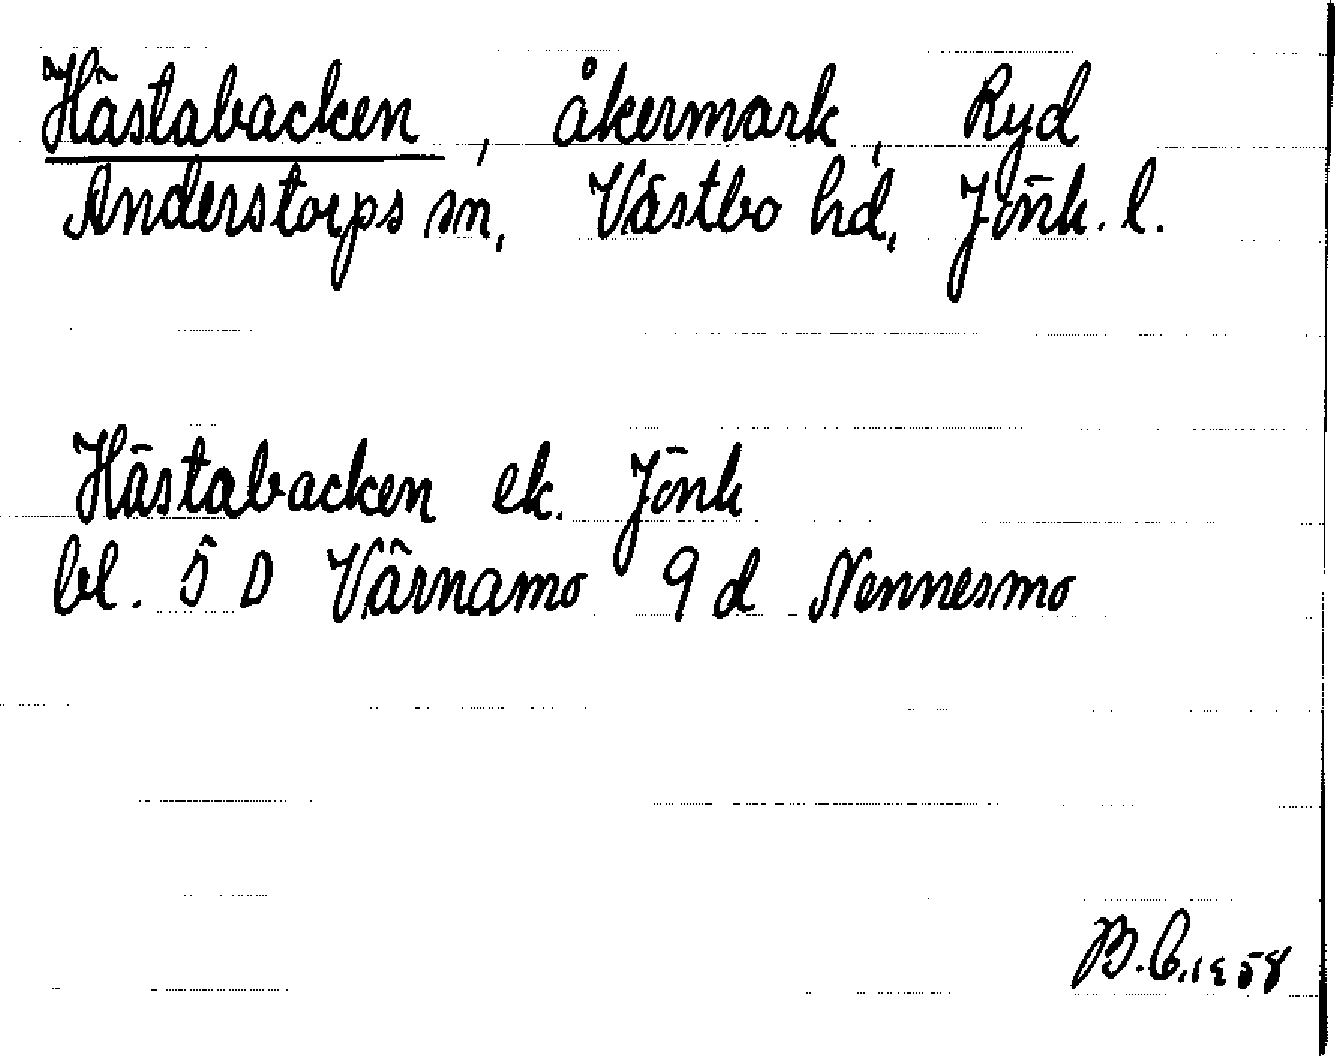 Hästabacken, åkermark, Ryd
Anderstorps sn, Västbo hd, Jönk. l.
Hästabacken ek. Jönk
bl. 5 D Värnamo 9 d Nennesmo
B. C. 1958